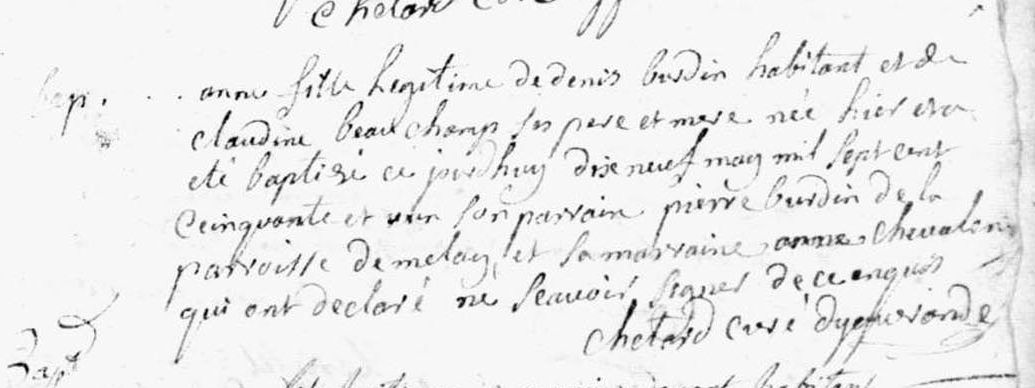 chetard curé
bap. anne fille legitime de denis burdin habitant et de
claudine beauchamp ses pere et mere née hier et a
eté baptisé ce jourdhuy dix neuf may mil sept cent
ceinquante et un son parrain pierre burdin de la
parroisse de melay, et sa marraine anne chevalon
qui ont declaré ne scavoir signer de ce enquis
chetard curé dyguerande
Bapt
habitant